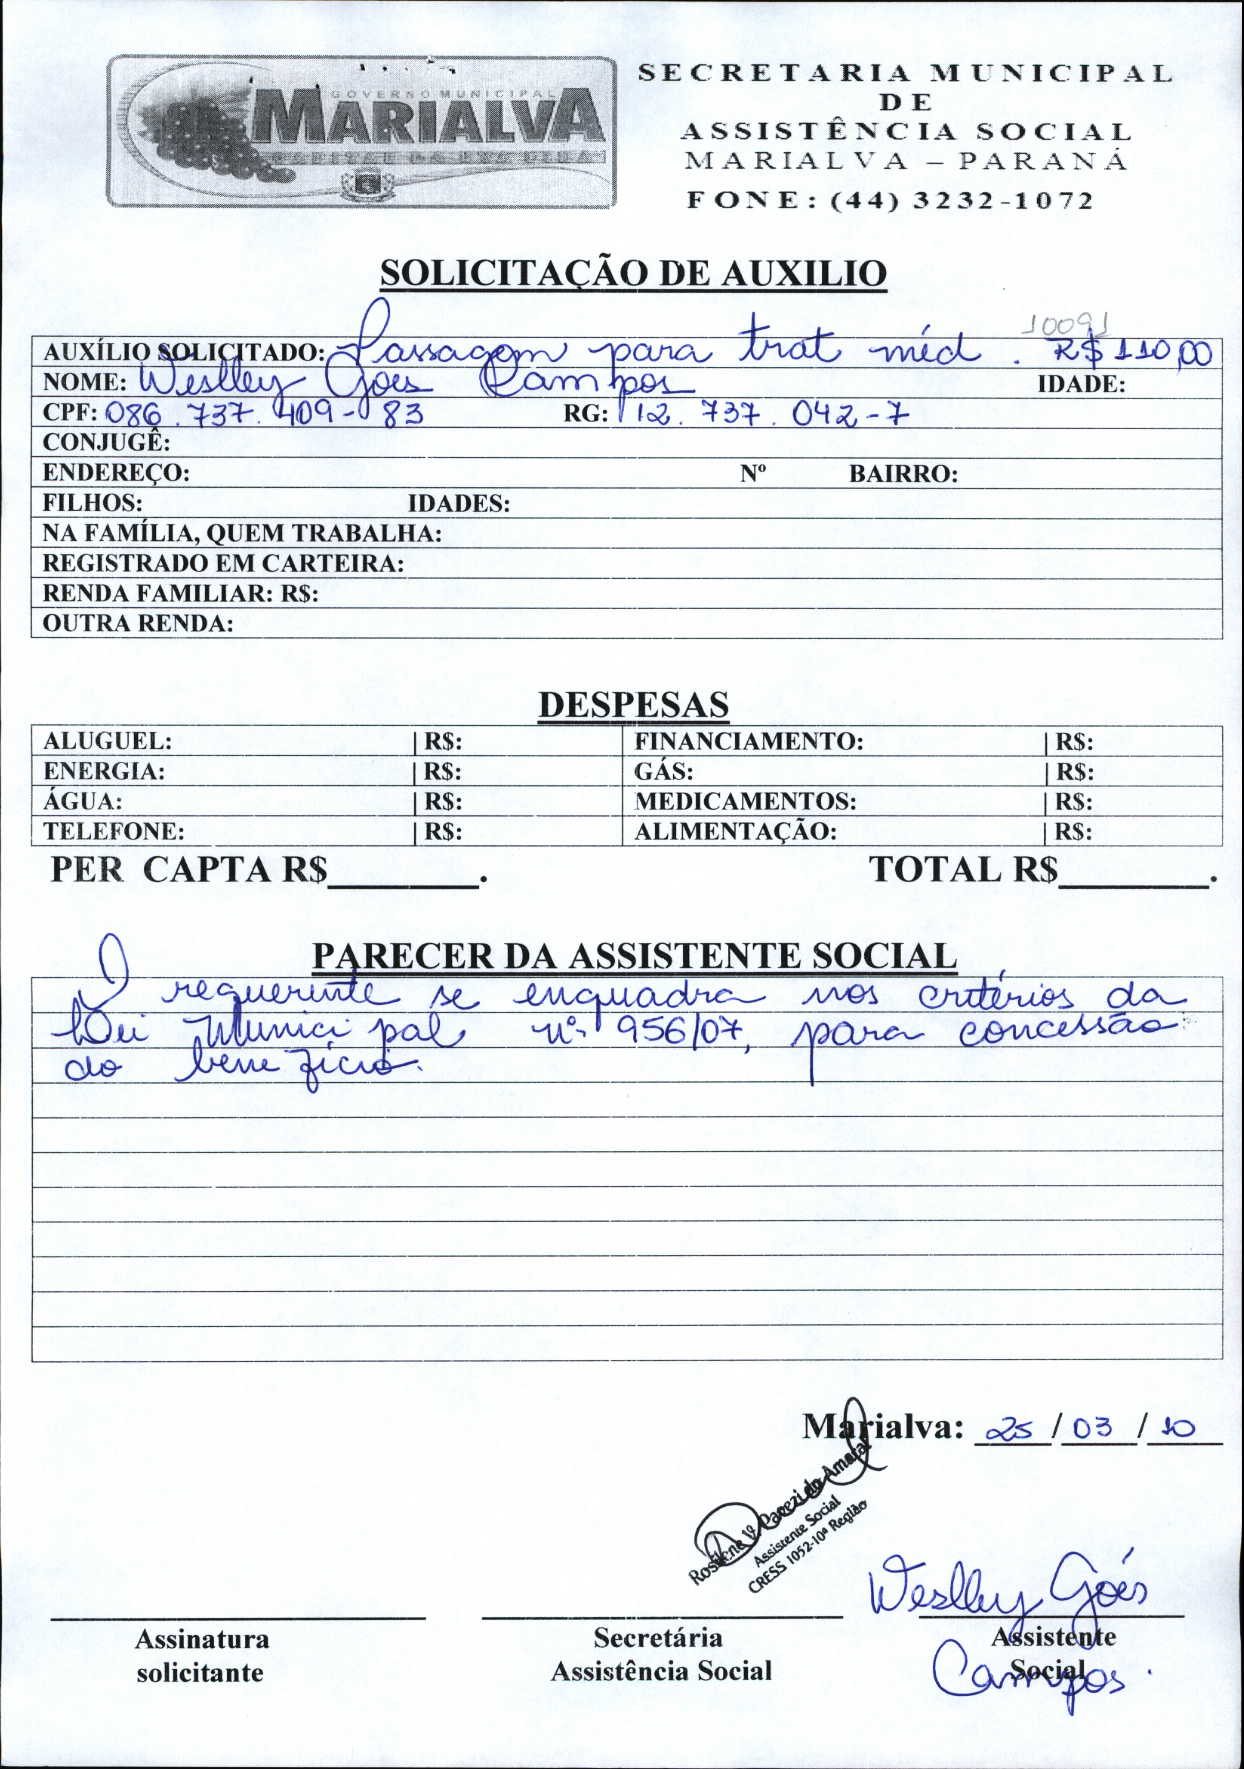 GOVERNO MUNICIPAL
MARIALVA
CAPITAL DA UVA FINA
SECRETARIA MUNICIPAL
DE
ASSISTÊNCIA SOCIAL
MARIALVA – PARANÁ
FONE: (44) 3232-1072
SOLICITAÇÃO DE AUXILIO
10091
AUXÍLIO SOLICITADO: Passagem para trat méd. R$ 110,00
NOME: Weslley Goes Campos IDADE:
CPF: 086.737.409-83 RG: 12.737.042-7
CONJUGÊ:
ENDEREÇO: Nº BAIRRO:
FILHOS: IDADES:
NA FAMÍLIA, QUEM TRABALHA:
REGISTRADO EM CARTEIRA:
RENDA FAMILIAR: R$:
OUTRA RENDA:
DESPESAS
ALUGUEL: | R$: FINANCIAMENTO: | R$:
ENERGIA: | R$: GÁS: | R$:
ÁGUA: | R$: MEDICAMENTOS: | R$:
TELEFONE: | R$: ALIMENTAÇÃO: | R$:
PER CAPTA R$________. TOTAL R$________.
PARECER DA ASSISTENTE SOCIAL
O requerente se enquadra nos critérios da
Lei Municipal nº 956/07, para concessão
do benefício.
Marialva: 25/03/10
Rosilene V. Parezi do Amaral
Assistente Social
CRESS 1052-10ª Região
Weslley Goés
Campos.
Assinatura
solicitante
Secretária
Assistência Social
Assistente
Social